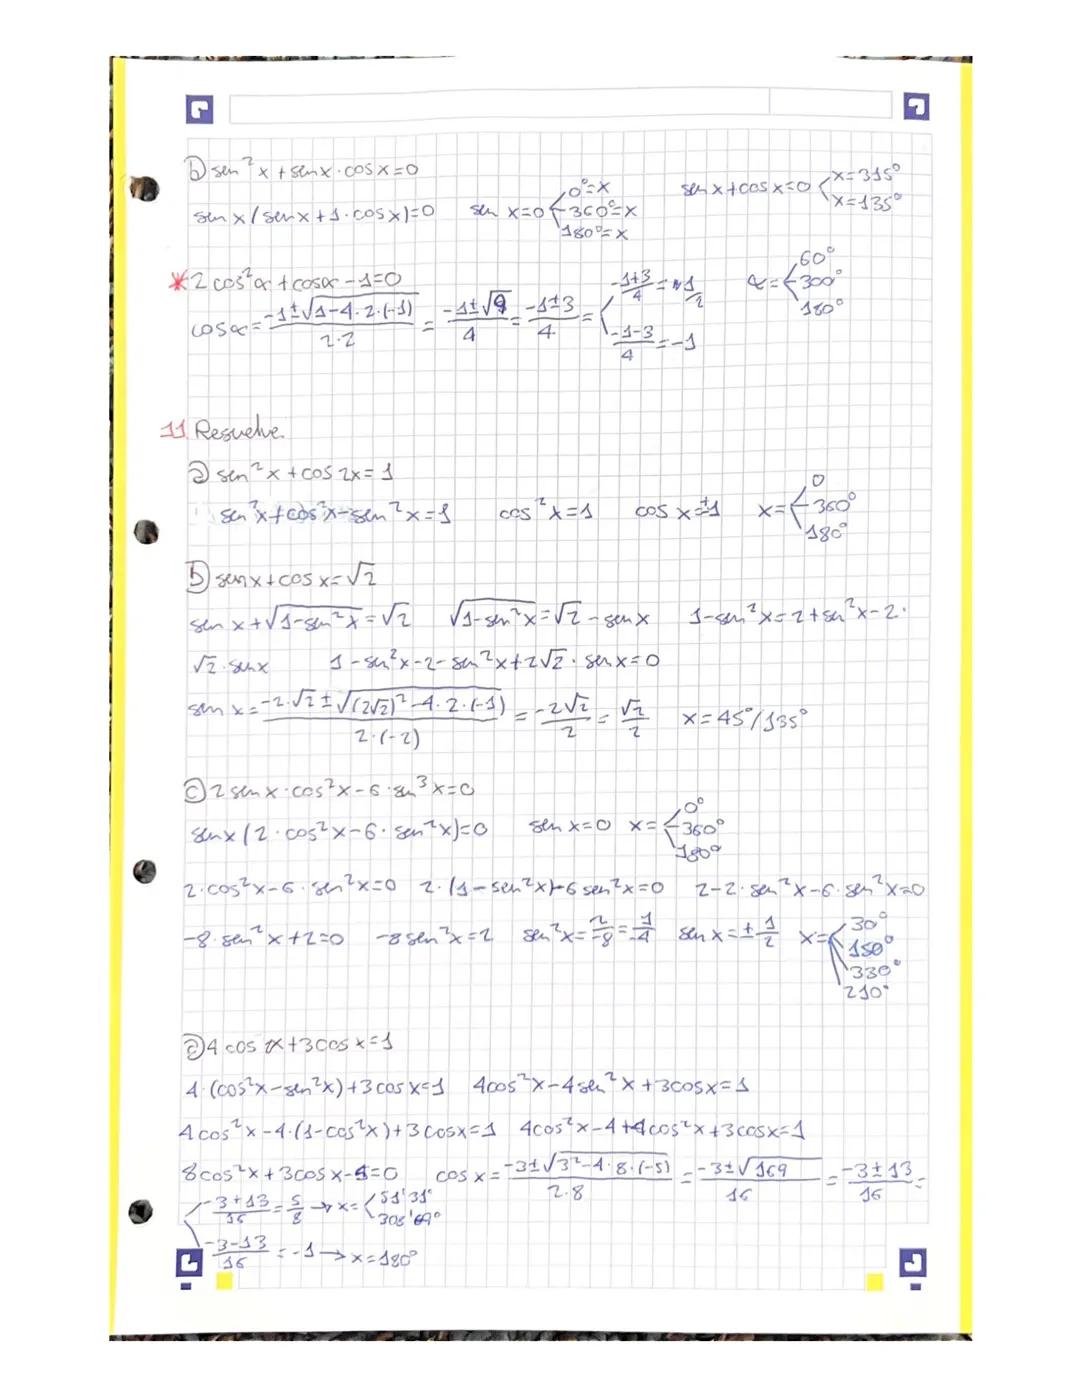 b) sen²x + senx·cosx=0
senx(senx+1·cosx)=0 sen x=0 0°=x 360°=x 180°=x senx+cosx=0 x=315° x=135°
*2cos²α+cosα-1=0
cosα= (-1±√(1-4·2·(-1)))/(2·2) = (-1±√9)/4 = (-1±3)/4 = (-1+3)/4 = 1/2 (-1-3)/4 = -1 α= 60° 300° 180°
11. Resuelve.
a) sen²x+cos2x=1
sen²x+cos²x-sen²x=1 cos²x=1 cosx=±1 x= 0 360° 180°
b) senx+cosx=√2
senx+√(1-sen²x)=√2 √(1-sen²x)=√2-senx 1-sen²x=2+sen²x-2·
√2·senx 1-sen²x-2-sen²x+2√2·senx=0
senx= (-2·√2±√((2√2)²-4·2·(-1)))/(2·(-2)) = (-2√2)/2 = √2/2 x=45°/135°
c) 2senx·cos²x-6·sen³x=0
senx(2·cos²x-6·sen²x)=0 senx=0 x= 0° 360° 180°
2·cos²x-6·sen²x=0 2·(1-sen²x)-6sen²x=0 2-2·sen²x-6·sen²x=0
-8·sen²x+2=0 -8sen²x=2 sen²x= 2/-8 = 1/-4 senx=± 1/2 x= 30° 150° 330° 210°
4cos 2x+3cosx=1
4·(cos²x-sen²x)+3cosx=1 4cos²x-4sen²x+3cosx=1
4cos²x-4·(1-cos²x)+3cosx=1 4cos²x-4+4cos²x+3cosx=1
8cos²x+3cosx-5=0 cosx= (-3±√(3²-4·8·(-5)))/(2·8) = (-3±√169)/16 = (-3±13)/16 =
(-3+13)/16 = 5/8 → x= 51'31° 308'69°
(-3-13)/16 = -1 → x=180°